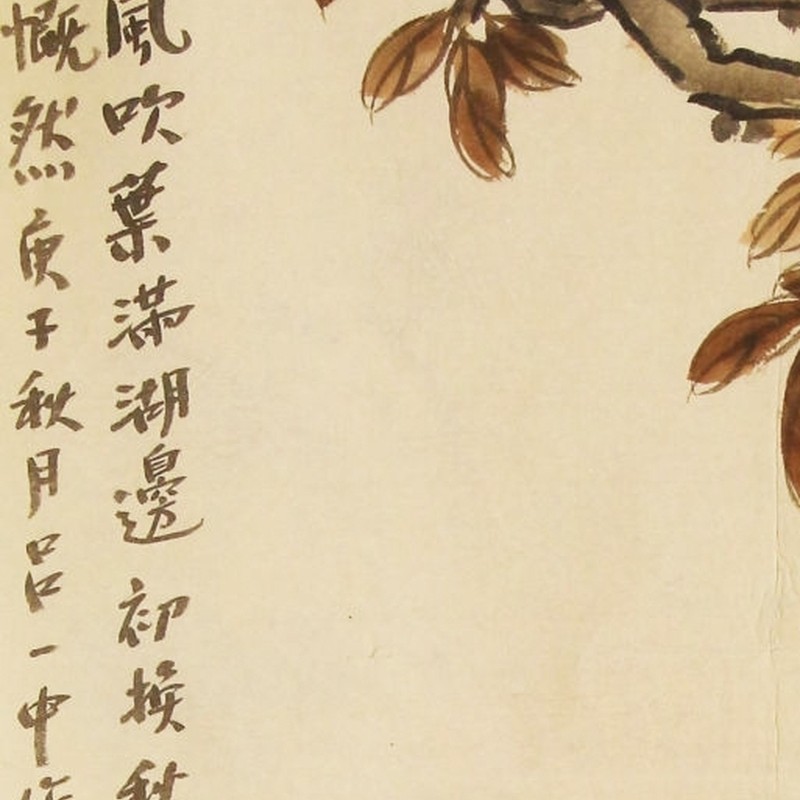 風吹葉滿湖邊初換秋
慨然庚子秋月呂一中作